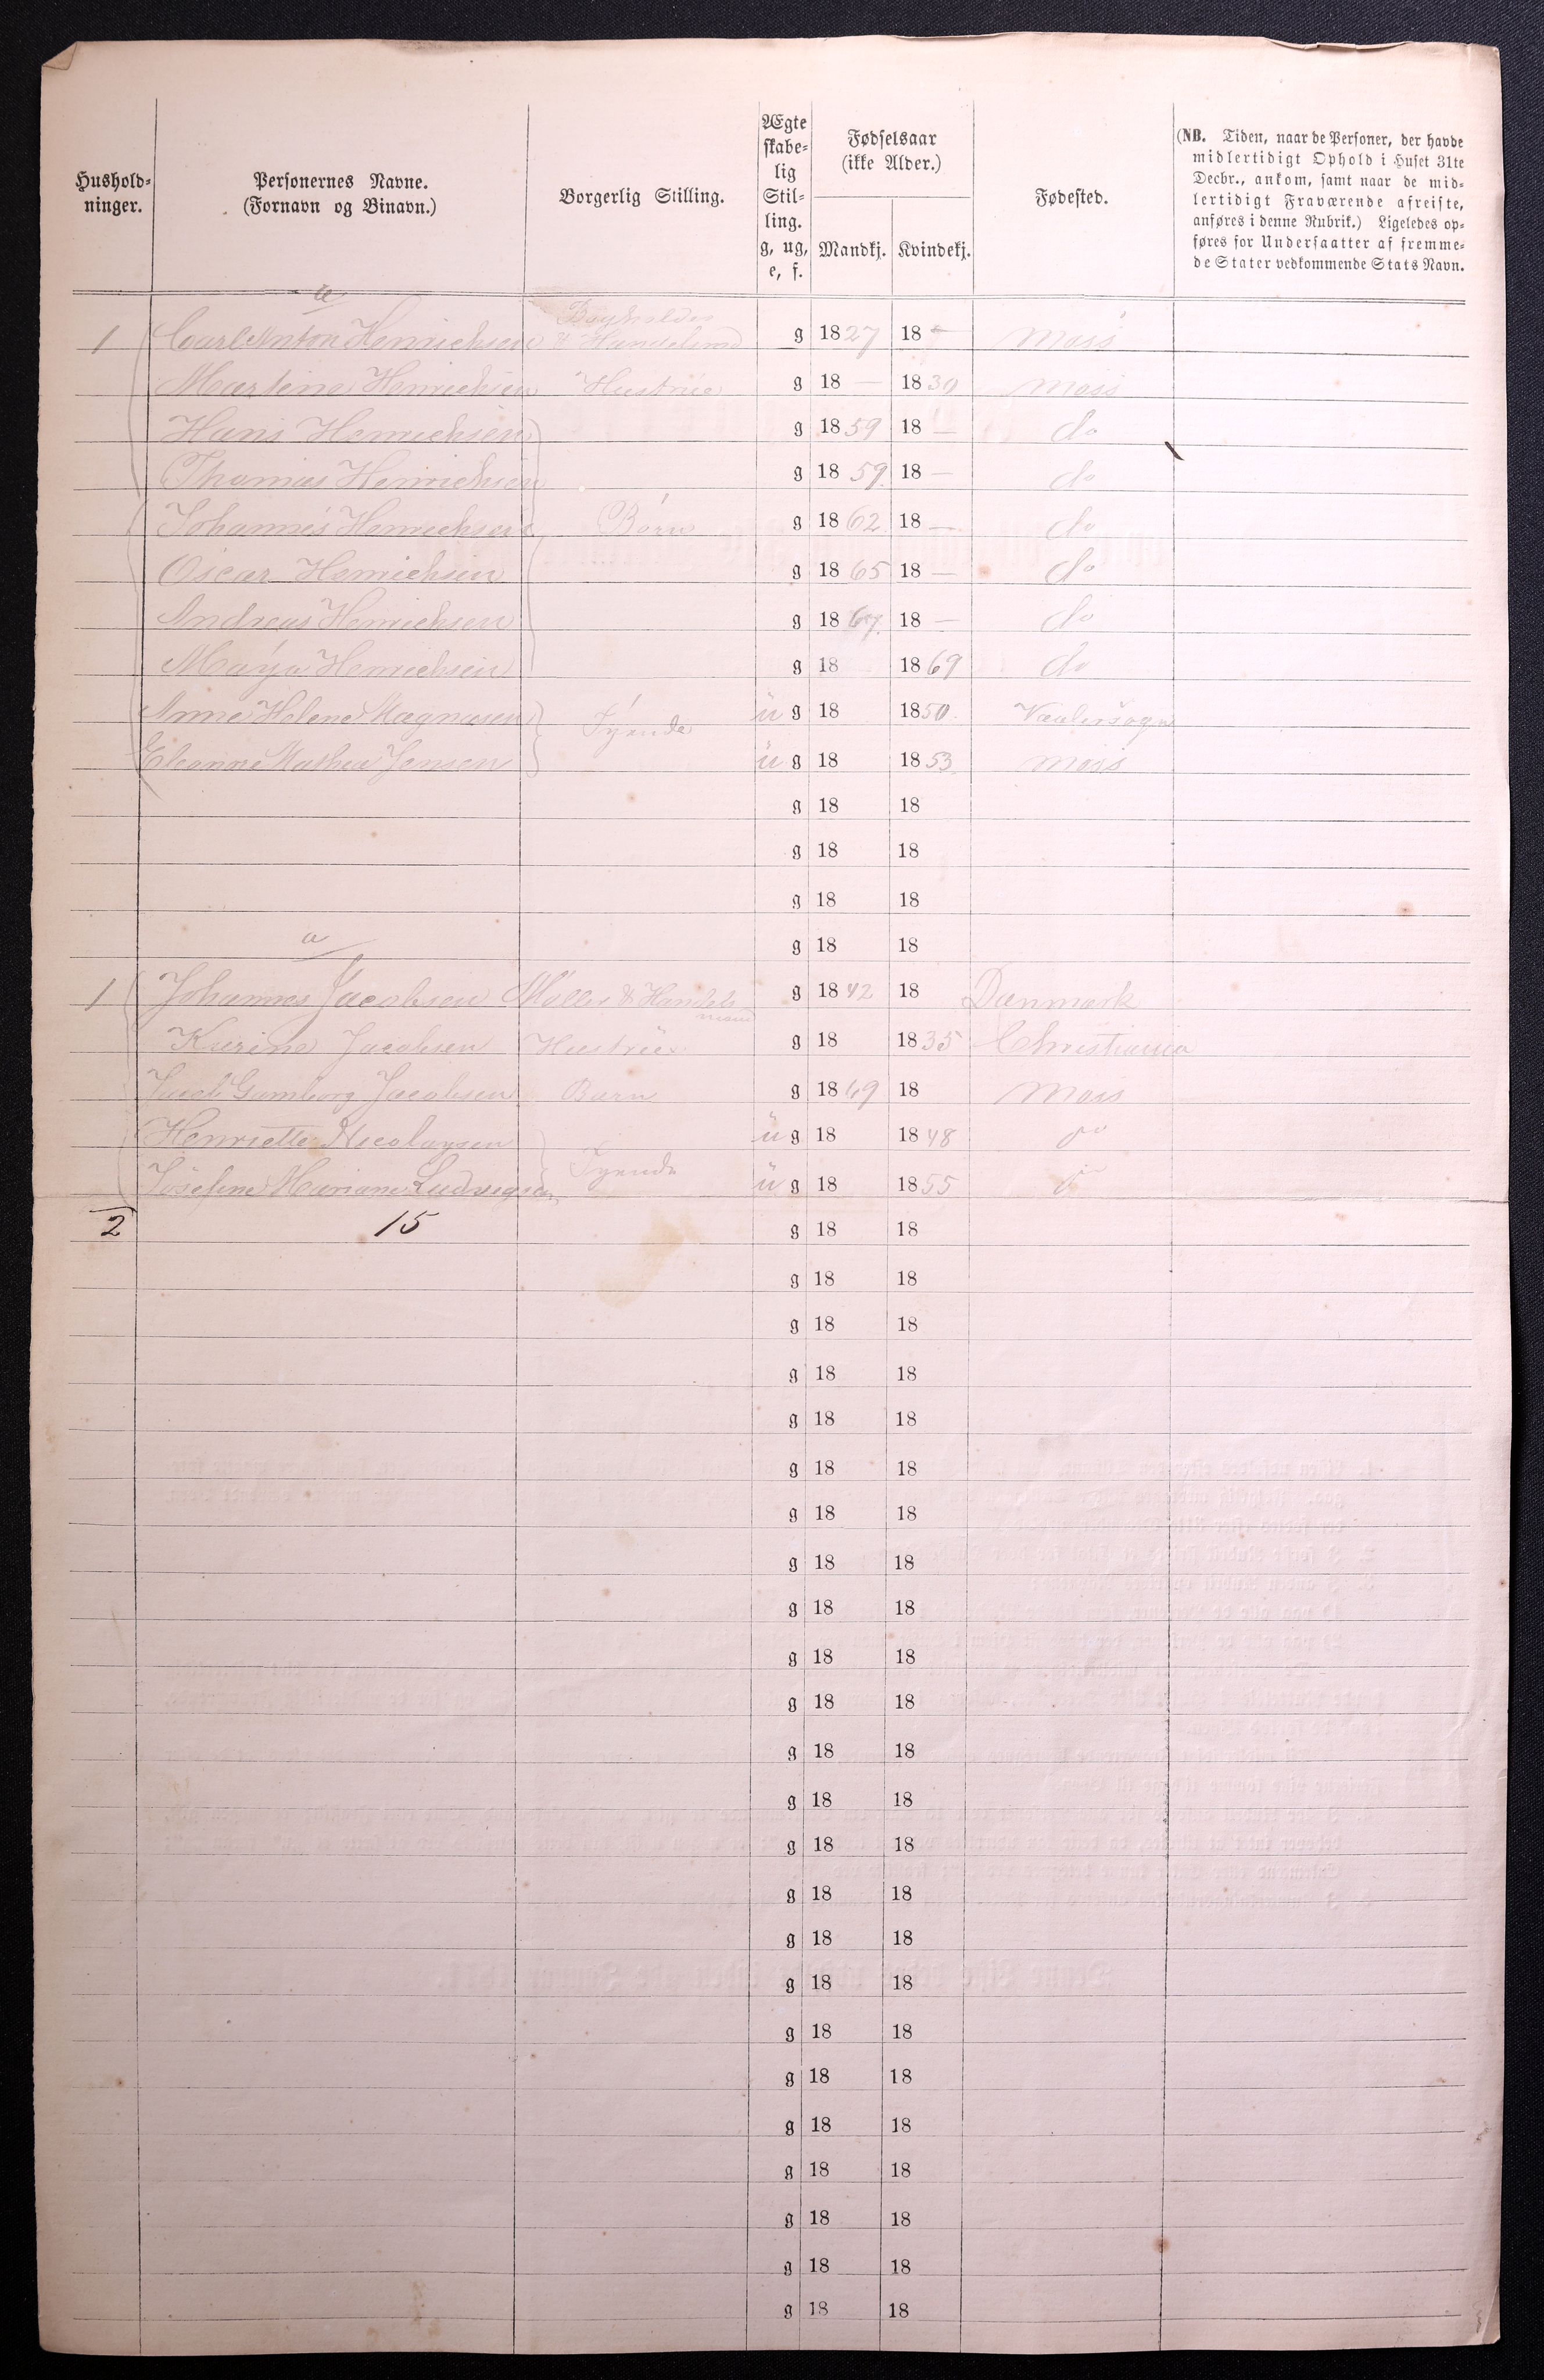 Hushold-
ninger.
Personernes Navne.
(Fornavn og Binavn.)
Borgerlig Stilling.
Ægte
skabe-
lig
Stil-
ling.
g, ug,
e, f.
Fødselsaar
(ikke Alder.)
Mandkj. Kvindekj.
Fødested.
(NB. Tiden, naar de Personer, der havde
midlertidigt Ophold i Huset 31te
Decbr., ankom, samt naar de mid-
lertidigt Fraværende afreiste,
anføres i denne Rubrik.) Ligeledes op-
føres for Undersaatter af fremme-
de Stater vedkommende Stats Navn.
a
Bogholder
1 Carl Anton Henrichsen & Handelsmd g 1827 18 — Moss
Martine Henrichsen Hustrue g 18 — 1830 Moss
Hans Henrichsen g 1859 18 — do
Thomas Henrichsen g 1859. 18 — do
Johannes Henrichsen Børn g 1862 18 — do
Oscar Henrichsen g 1865 18 — do
Andreas Henrichsen g 1867. 18 — do
Maya Henrichsen g 18 1869 do
Anne Helene Magnasen Tyende ug 18 1850. Vaalersogn
Jensen ug 18 1853 Moss
g 18 18
g 18 18
g 18 18
a
g 18 18
1 Johannes Jacobsen Møller & Handels g 1842 18 Danmark
mand
Karine Jacobsen Hustrue g 18 1835 Christiania
Jacob Gamborg Jacobsen Barn g 1869 18 Moss
Henriette Nicolaysen ug 18 1848 do
Tyende
Josefine Mariane Ludvigsen ug 18 1855 do
2 15 g 18 18
g 18 18
g 18 18
g 18 18
g 18 18
g 18 18
g 18 18
g 18 18
g 18 18
g 18 18
g 18 18
g 18 18
g 18 18
g 18 18
g 18 18
g 18 18
g 18 18
g 18 18
g 18 18
g 18 18
g 18 18
g 18 18
g 18 18
g 18 18